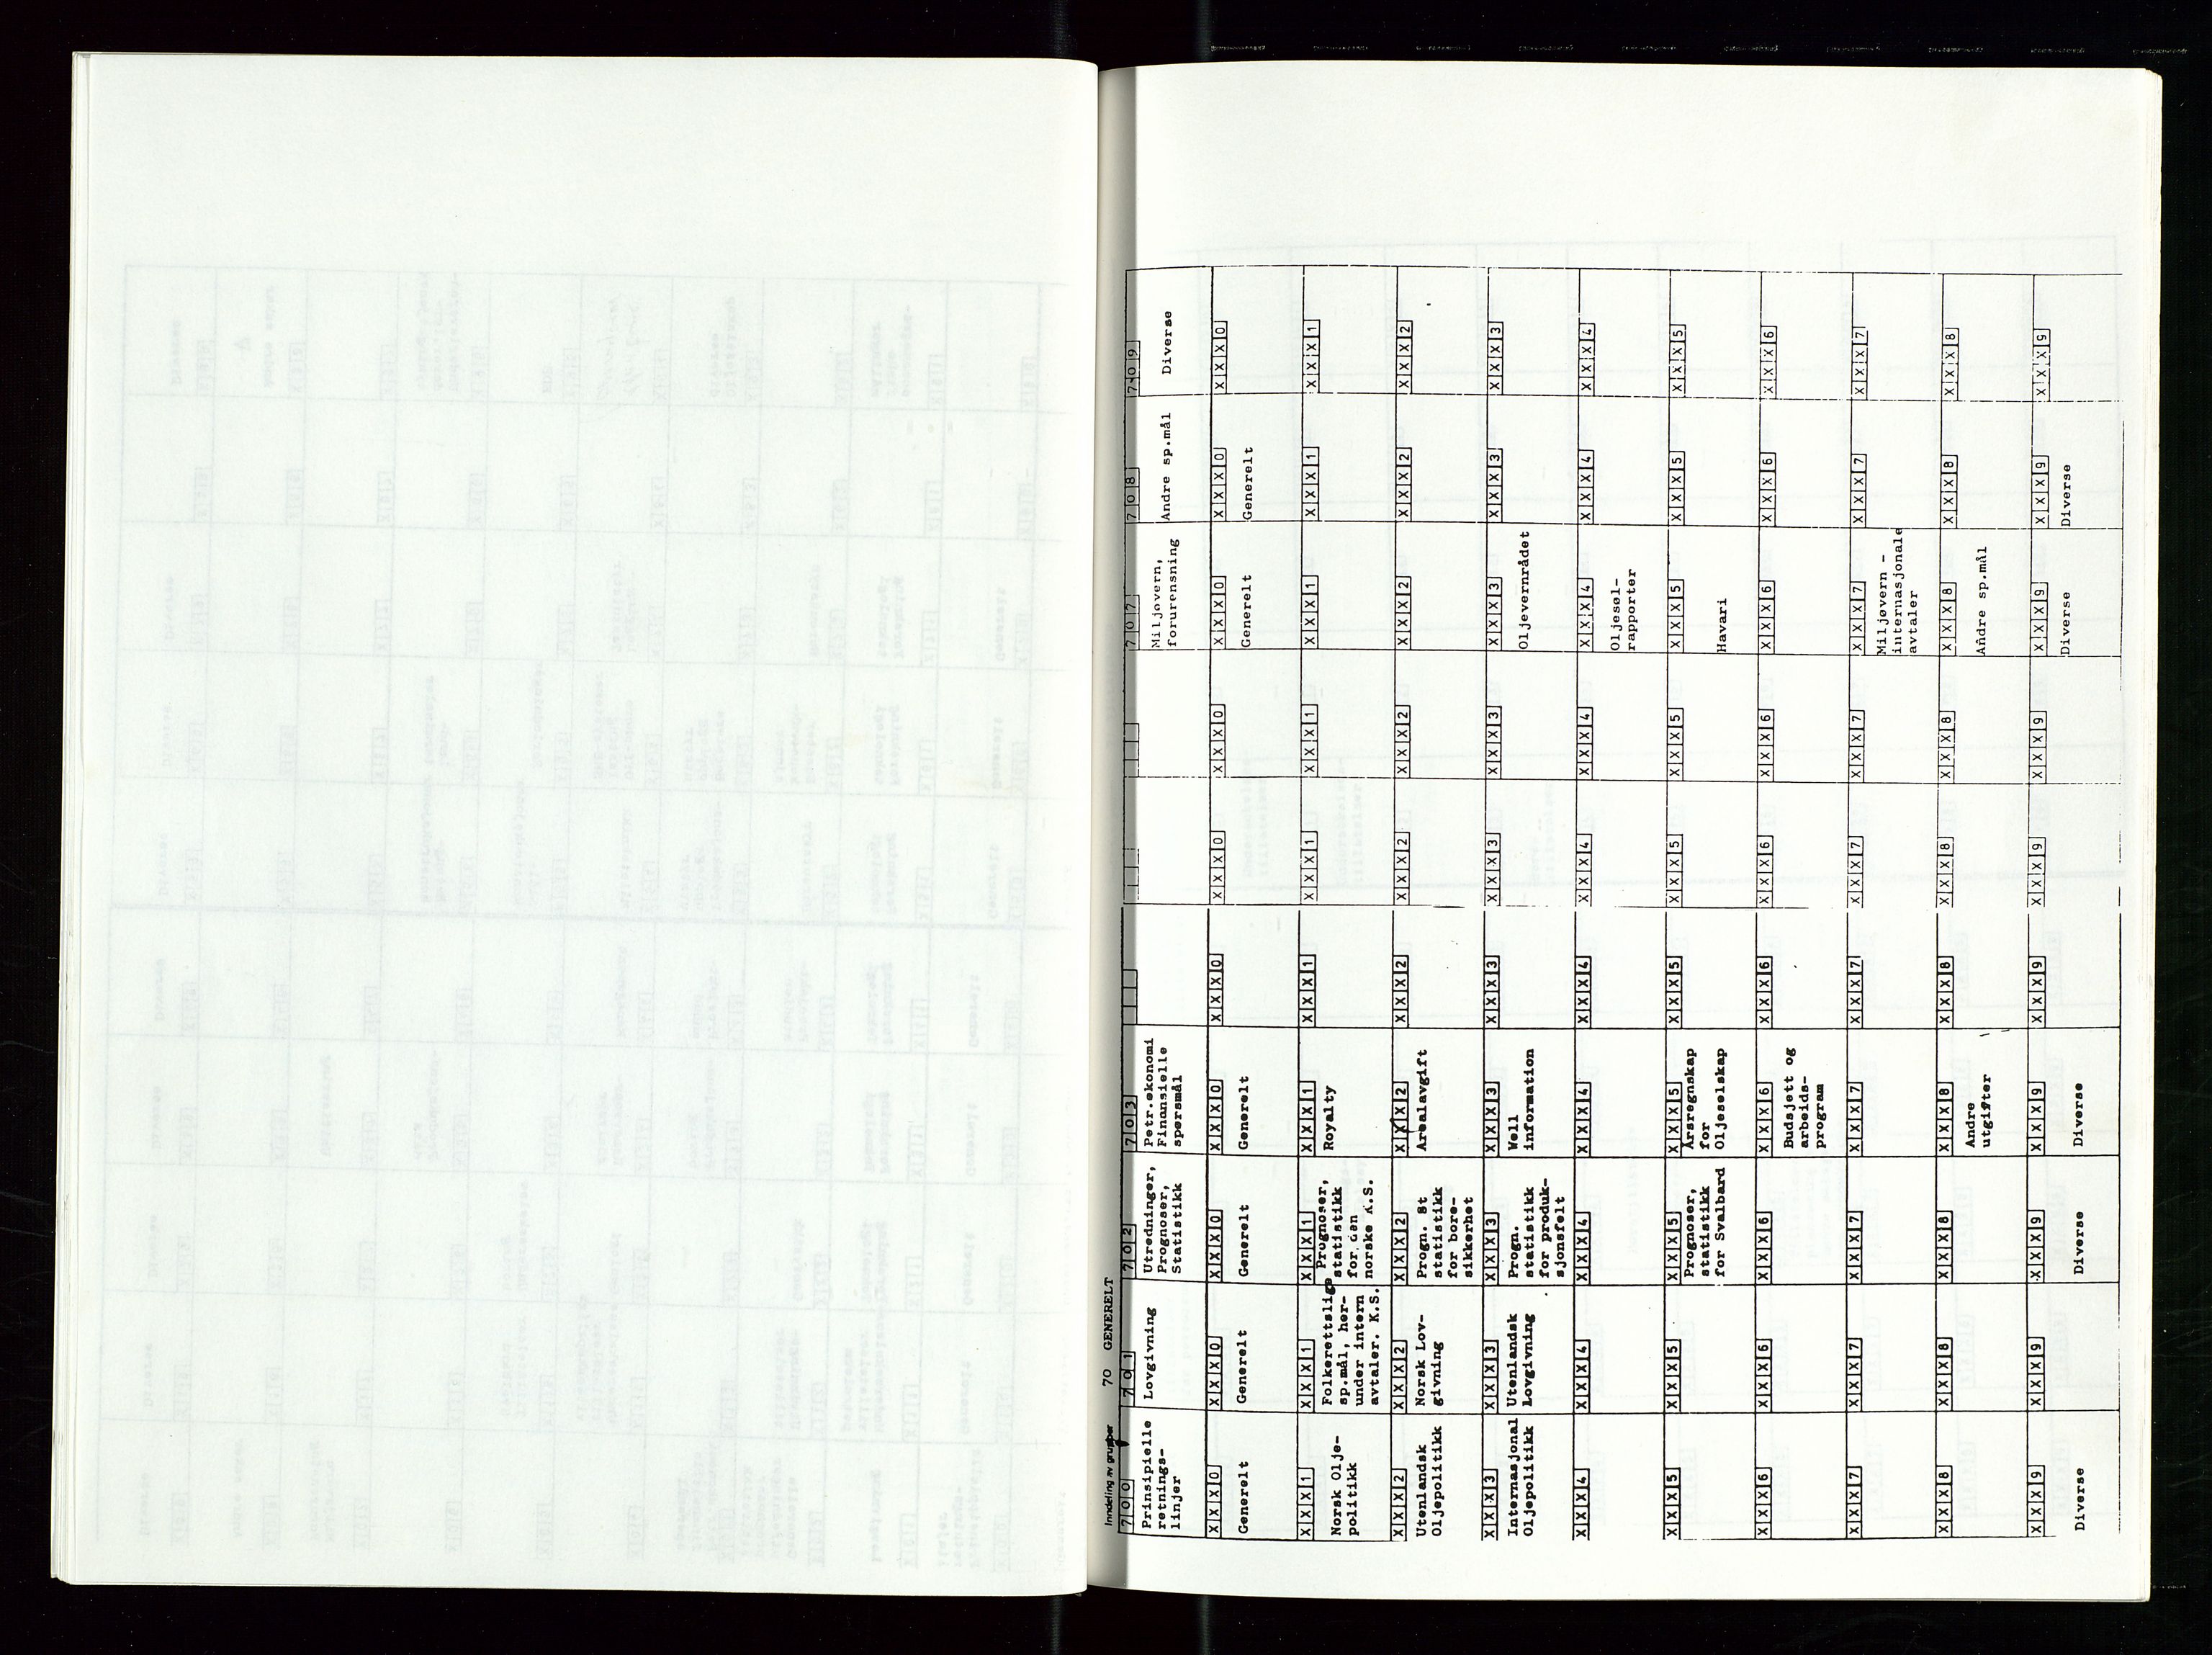 Inndeling av grupper 70 GENERELT
700
Prinsipielle
retnings-
linjer
701
Lovgivning
702
Utredninger,
Prognoser,
Statistikk
703
Petr.økonomi
Finansielle
spørsmål
707
Miljøvern,
forurensning
708
Andre sp.mål
709
Diverse
XXX0 XXX0 XXX0 XXX0 XXX0 XXX0 XXX0 XXX0 XXX0 XXX0
Generelt Generelt Generelt Generelt Generelt Generelt
XXX1 XXX1 XXX1 XXX1 XXX1 XXX1 XXX1 XXX1 XXX1 XXX1
Norsk Olje-
politikk
Folkerettslige
sp.mål, her-
under intern
avtaler. K.S.
Prognoser,
statistikk
for den
norske K.S.
Royalty
XXX2 XXX2 XXX2 XXX2 XXX2 XXX2 XXX2 XXX2 XXX2 XXX2
Utenlandsk
Oljepolitikk
Norsk Lov-
givning
Progn. &t
statistikk
for bore-
sikkerhet
Arealavgift
XXX3 XXX3 XXX3 XXX3 XXX3 XXX3 XXX3 XXX3 XXX3 XXX3
Internasjonal
Oljepolitikk
Utenlandsk
Lovgivning
Progn.
statistikk
for produk-
sjonsfelt
Well
information
Oljevernrådet
XXX4 XXX4 XXX4 XXX4 XXX4 XXX4 XXX4 XXX4 XXX4 XXX4
Oljesøl-
rapporter
XXX5 XXX5 XXX5 XXX5 XXX5 XXX5 XXX5 XXX5 XXX5 XXX5
Prognoser,
statistikk
for Svalbard
Årsregnskap
for
Oljeselskap
Havari
XXX6 XXX6 XXX6 XXX6 XXX6 XXX6 XXX6 XXX6 XXX6 XXX6
Budsjett og
arbeids-
program
XXX7 XXX7 XXX7 XXX7 XXX7 XXX7 XXX7 XXX7 XXX7 XXX7
Miljøvern -
internasjonale
avtaler
XXX8 XXX8 XXX8 XXX8 XXX8 XXX8 XXX8 XXX8 XXX8 XXX8
Andre
utgifter
Andre sp.mål
XXX9 XXX9 XXX9 XXX9 XXX9 XXX9 XXX9 XXX9 XXX9 XXX9
Diverse Diverse Diverse Diverse Diverse